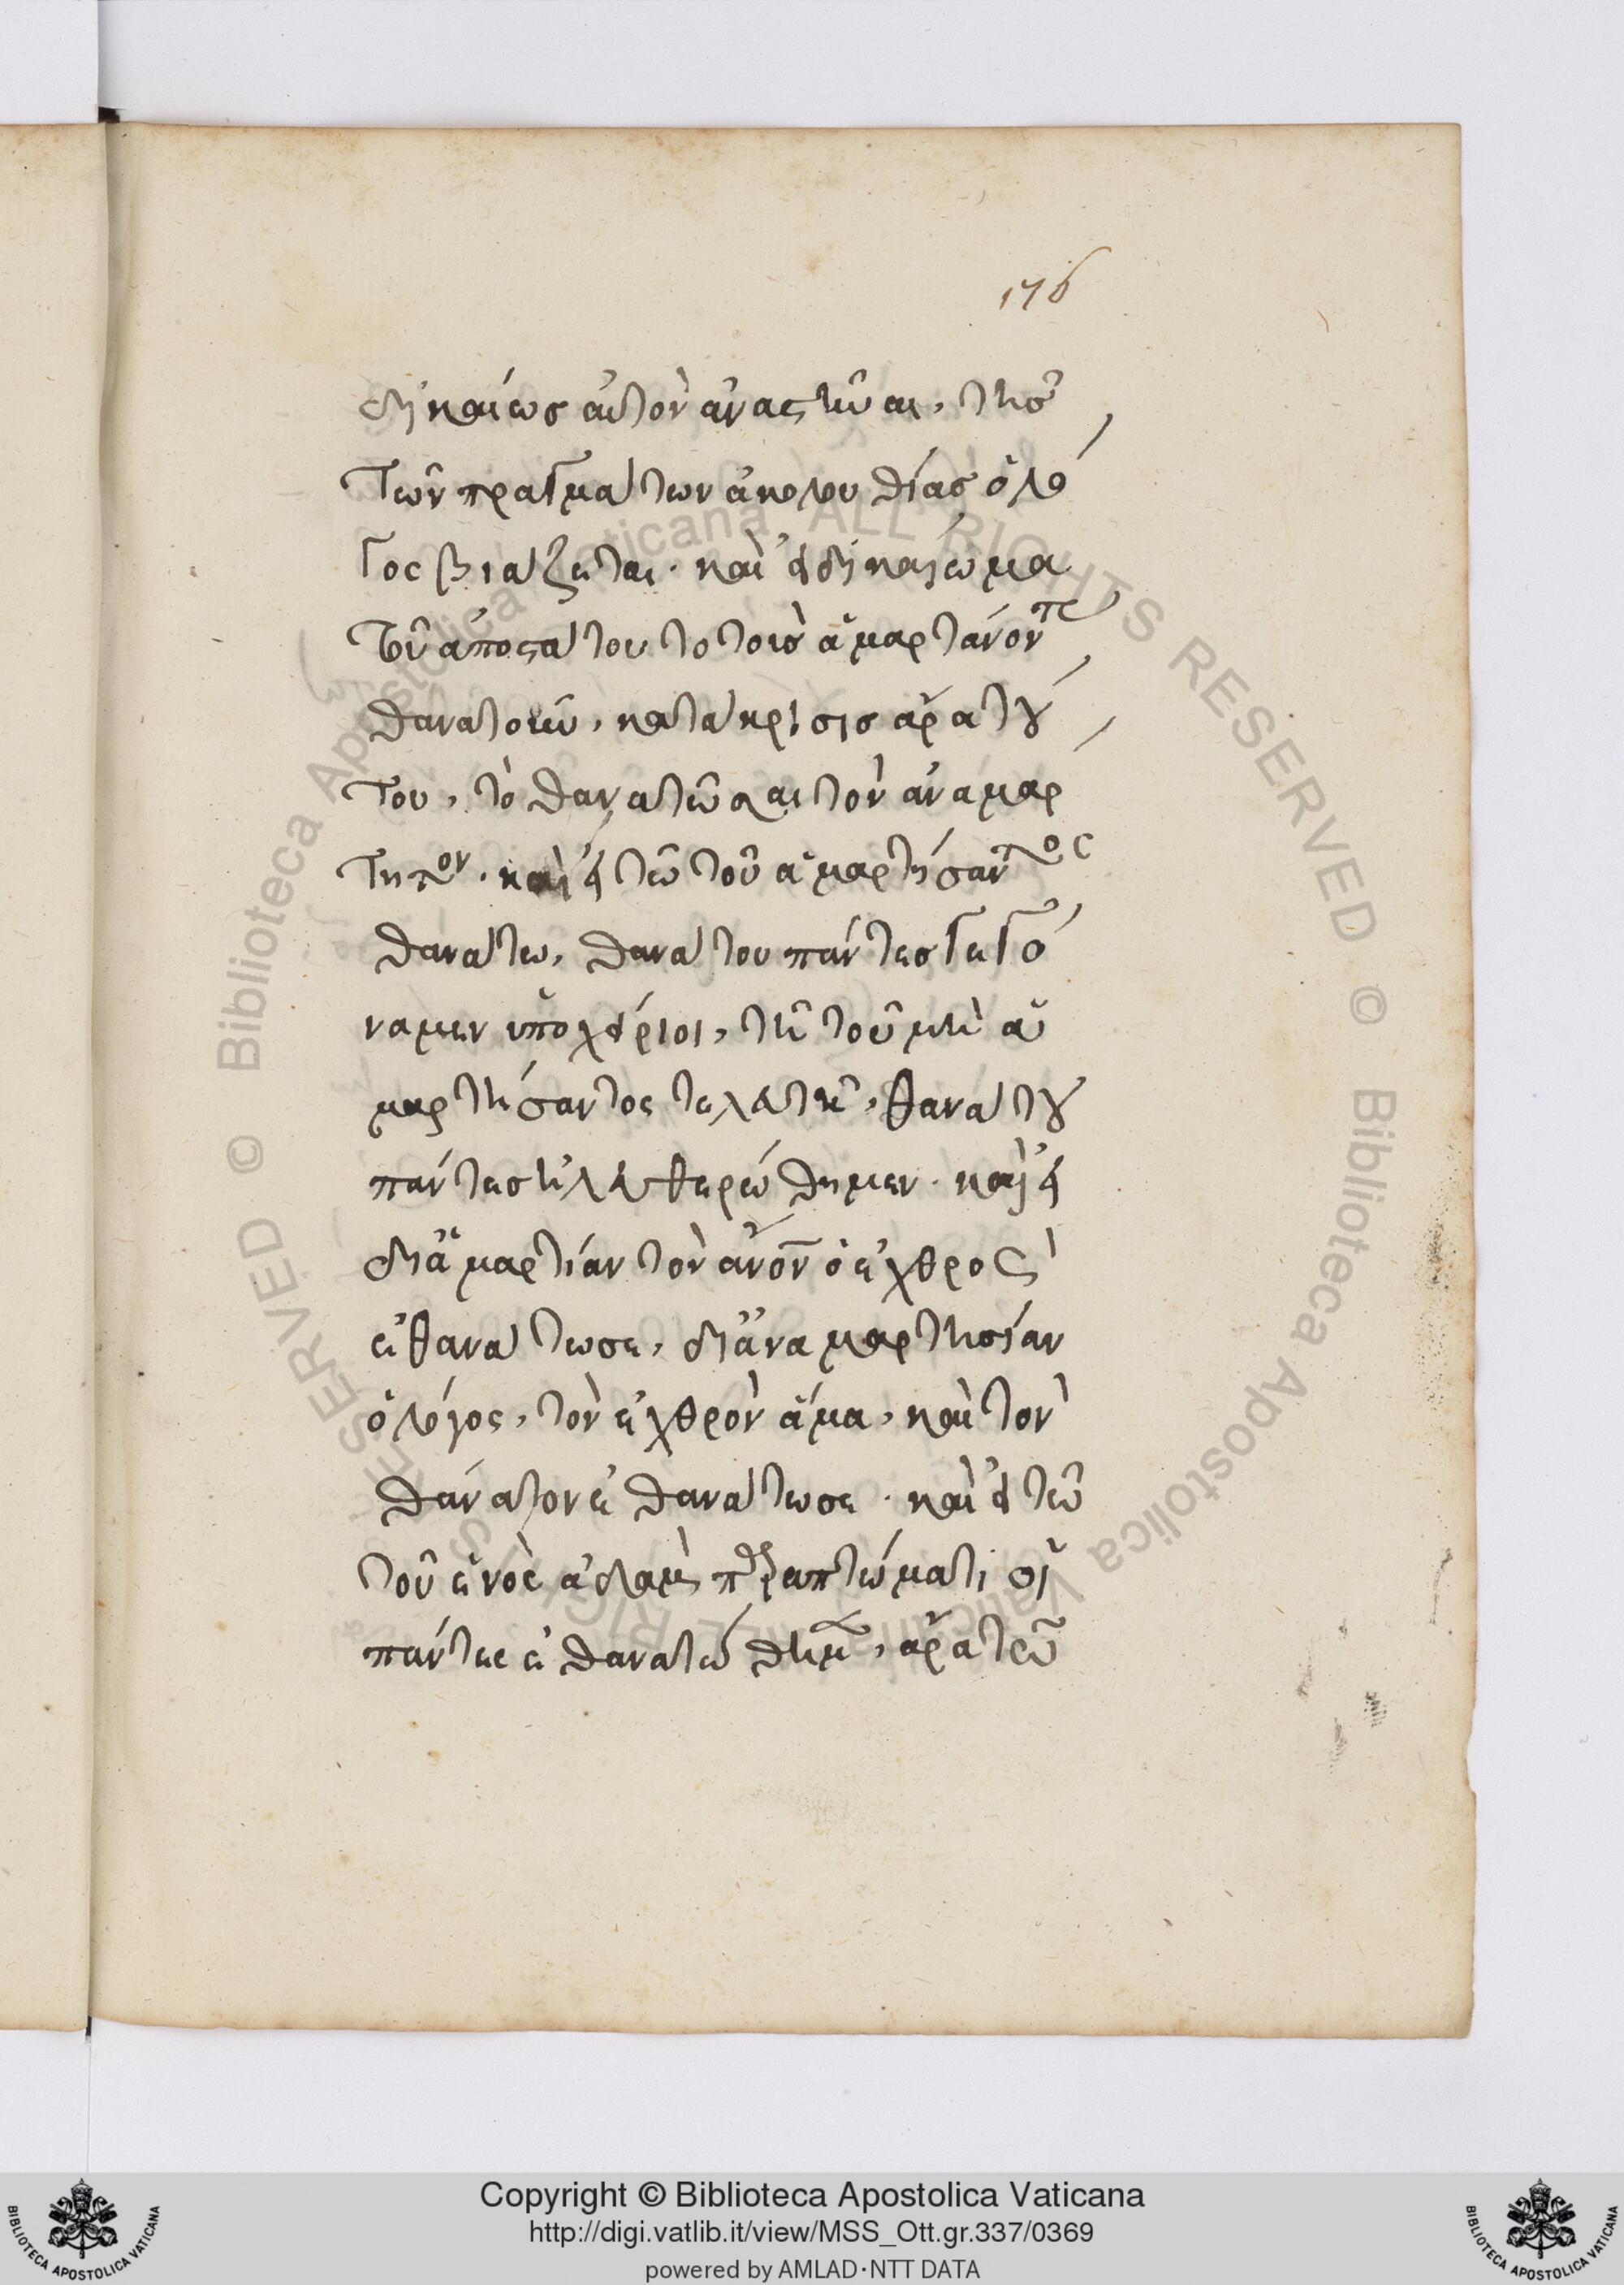 176
δικαίως αὐτὸν ἀναστῆναι, τῆς
τῶν πραγμάτων ἀκολουθίας ὁ λό
γος βιάζεται· καὶ εἰ δικαίωμα
τοῦ ἀποστάτου τὸ τοὺς ἁμαρτάνοντας
θανατοῦν, κατάκρισις ἄρα τού
του, τὸ θανατῶσαι τὸν ἀναμάρ
τητον· καὶ εἰ τῶ τοῦ ἁμαρτήσαντος
θανάτω, θανάτου πάντες γεγό
ναμεν ὑποχείριοι, τῆ τοῦ μὴ ἁ
μαρτήσαντος τελευτῆ, θανάτου
πάντες ἠλευθερώθημεν· καὶ εἰ
δι ἁμαρτίαν τὸν ἄνον ὁ ἐχθρὸς
ἐθανάτωσε, δι ἀναμαρτησίαν
ὁ λόγος, τὸν ἐχθρὸν ἅμα, καὶ τὸν
θάνατον ἐθανάτωσε· καὶ εἰ τῶ
τοῦ ἑνὸς ἀδαμ παραπτώματι οἱ
πάντες ἐθανατώθημεν, ἄρα τῶ
Copyright © Biblioteca Apostolica Vaticana
http://digi.vatlib.it/view/MSS_Ott.gr.337/0369
powered by AMLAD·NTT DATA
BIBLIOTECA APOSTOLICA VATICANA
BIBLIOTECA APOSTOLICA VATICANA
© Biblioteca Apostolica Vaticana ALL RIGHTS RESERVED © Biblioteca Apostolica Vaticana ALL RIGHTS RESERVED